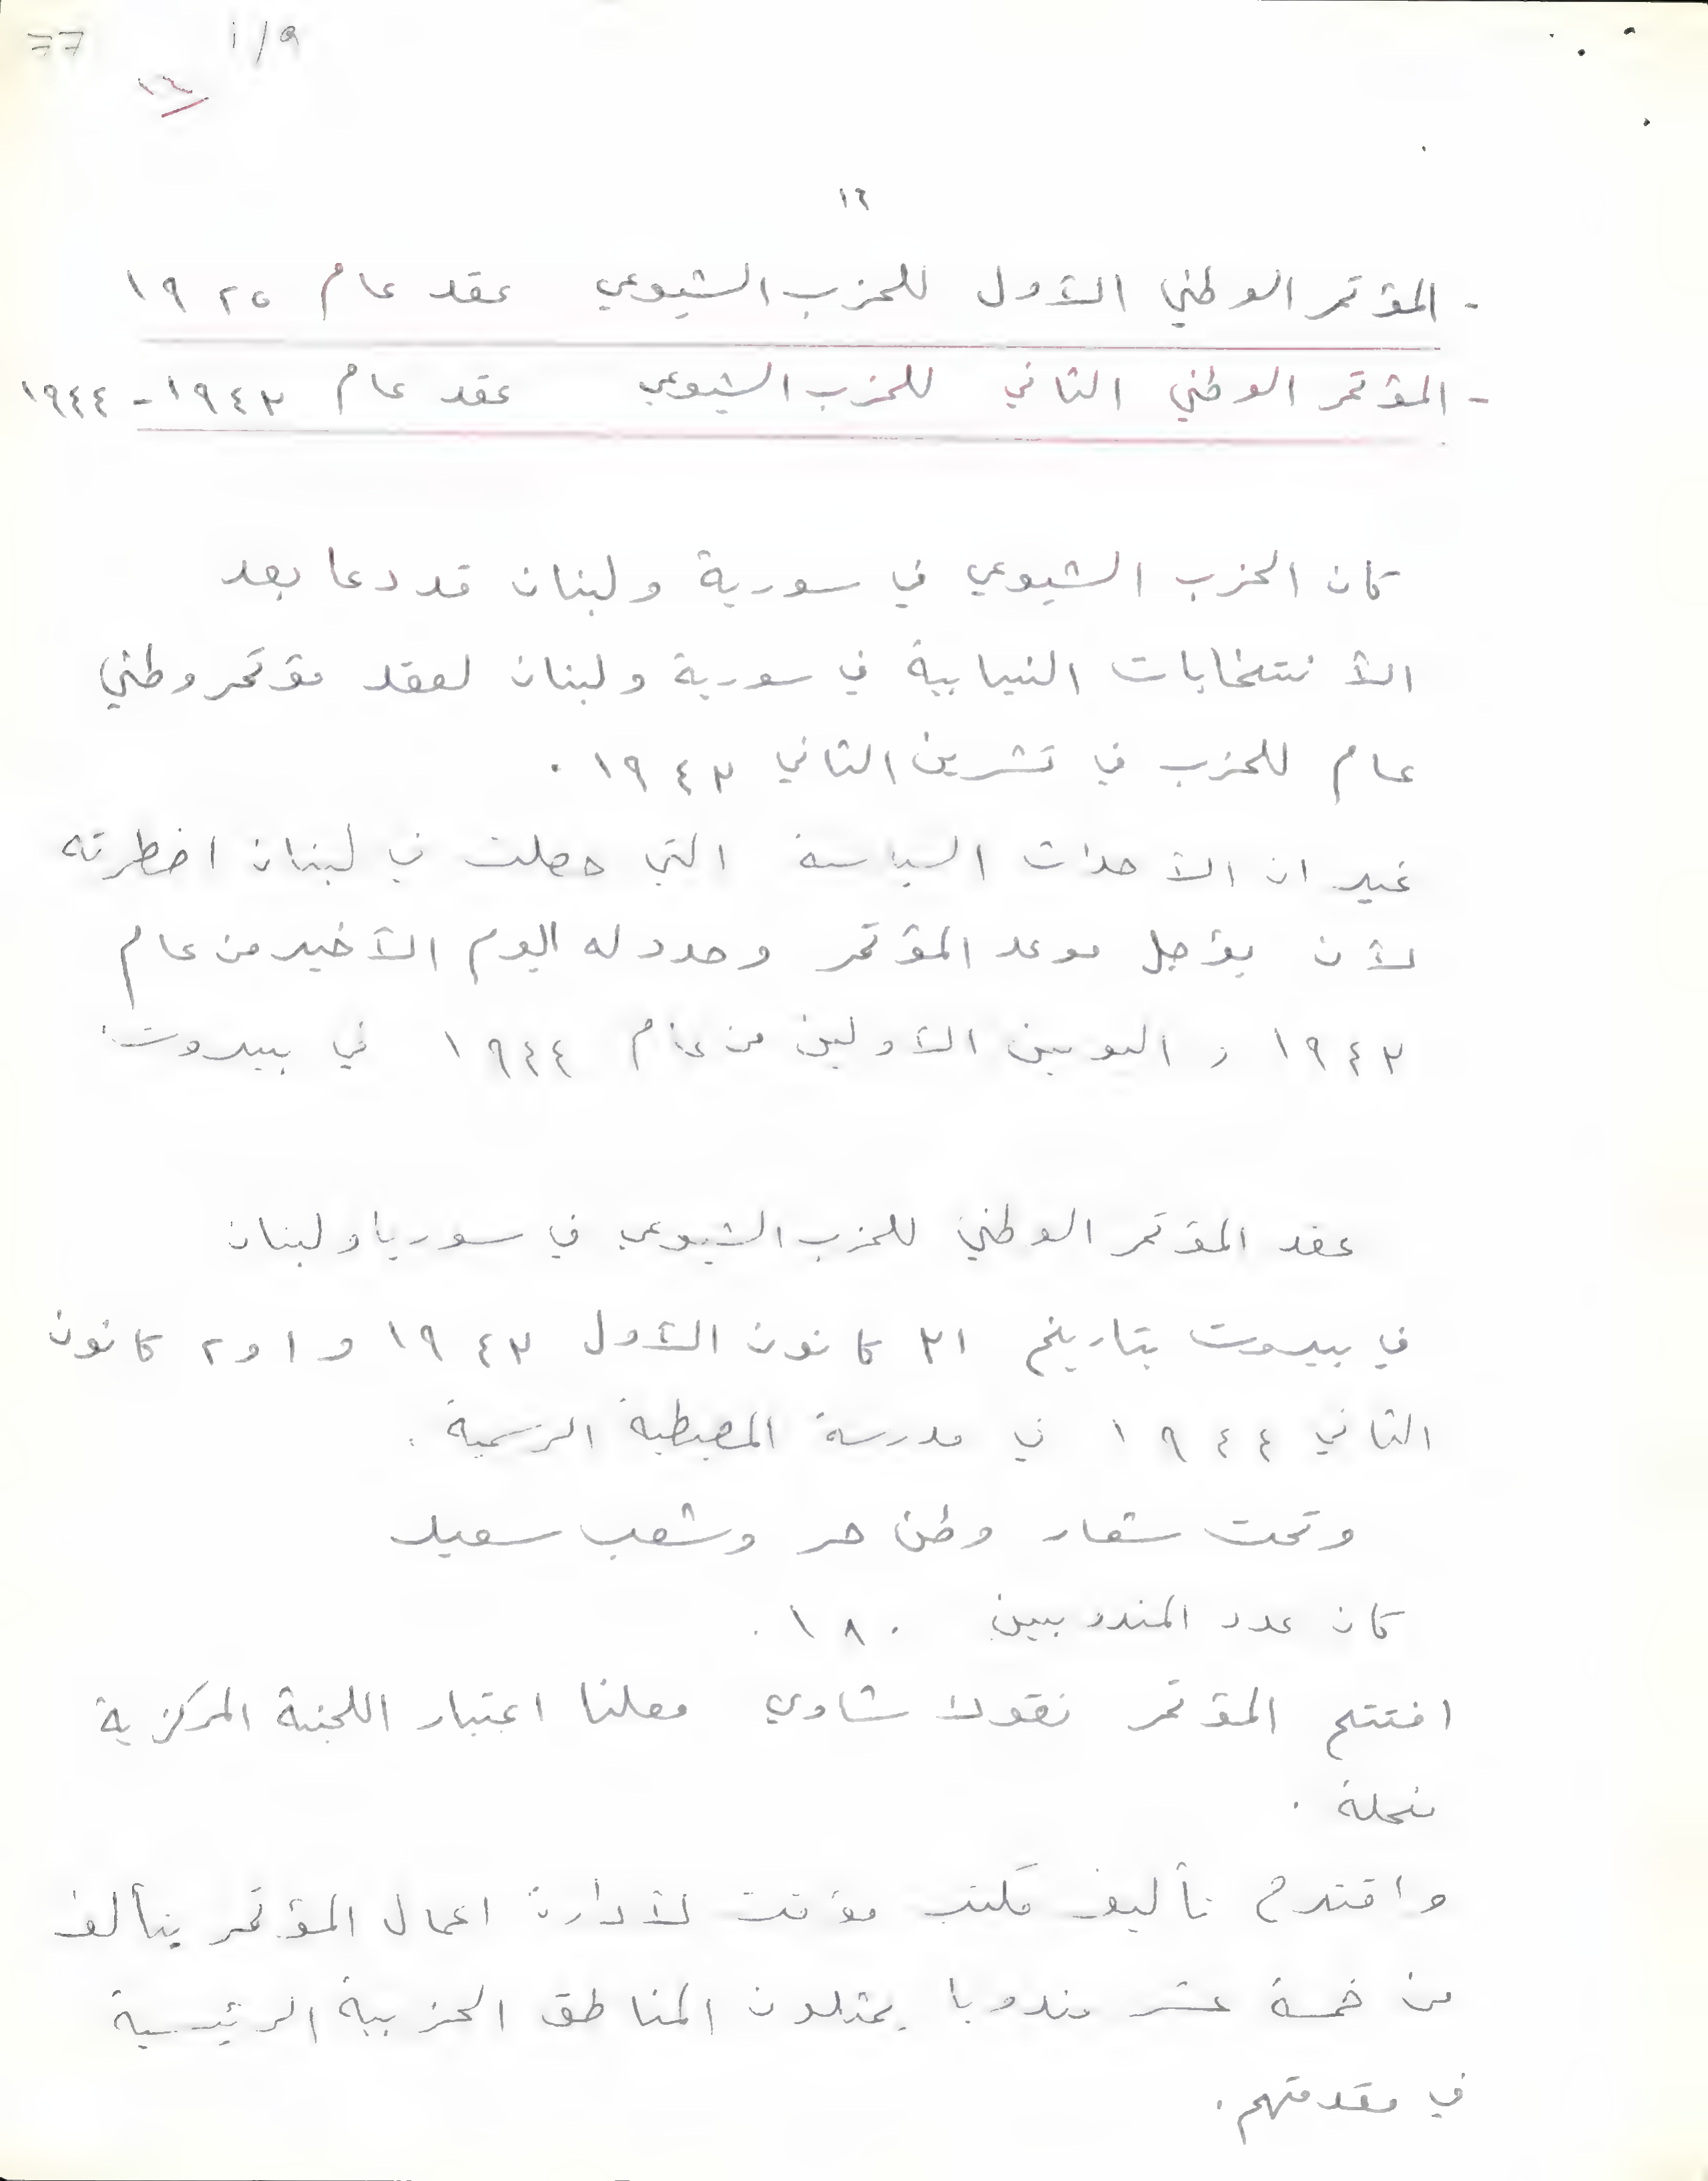 i/9
77
١٦
١٦
- المؤتمر الوطني الأول للحزب الشيوعي عقد عام ١٩٢٥
- المؤتمر الوطني الثاني للحزب الشيوعي عقد عام ١٩٤٣ - ١٩٤٤
كان الحزب الشيوعي في سورية ولبنان قد دعا بعد
الأنتخابات النيابية في سورية ولبنان لعقد مؤتمر وطني
عام للحزب في تشرين الثاني ١٩٤٣ .
غير ان الأحداث السياسة التي حصلت في لبنان اضطرته
لأن يؤجل موعد المؤتمر وحدد له اليوم الأخير من عام
١٩٤٣ و اليومين الأولين من عام ١٩٤٤ في بيروت .
عقد المؤتمر الوطني للحزب الشيوعي في سوريا ولبنان
في بيروت بتاريخ ٣١ كانون الأول ١٩٤٣ و ١ و ٢ كانون
الثاني ١٩٤٤ في مدرسة المصيطبة الرسمية .
وتحت شعار وطن حر وشعب سعيد
كان عدد المندوبين ١٨٠ .
افتتح المؤتمر نقولا شاوي معلنا اعتبار اللجنة المركزية
منحلة .
واقترح تأليف مكتب مؤقت لأدارة اعمال المؤتمر يتألف
من خمسة عشر مندوبا يمثلون المناطق الحزبية الرئيسية
في مقدمتهم .